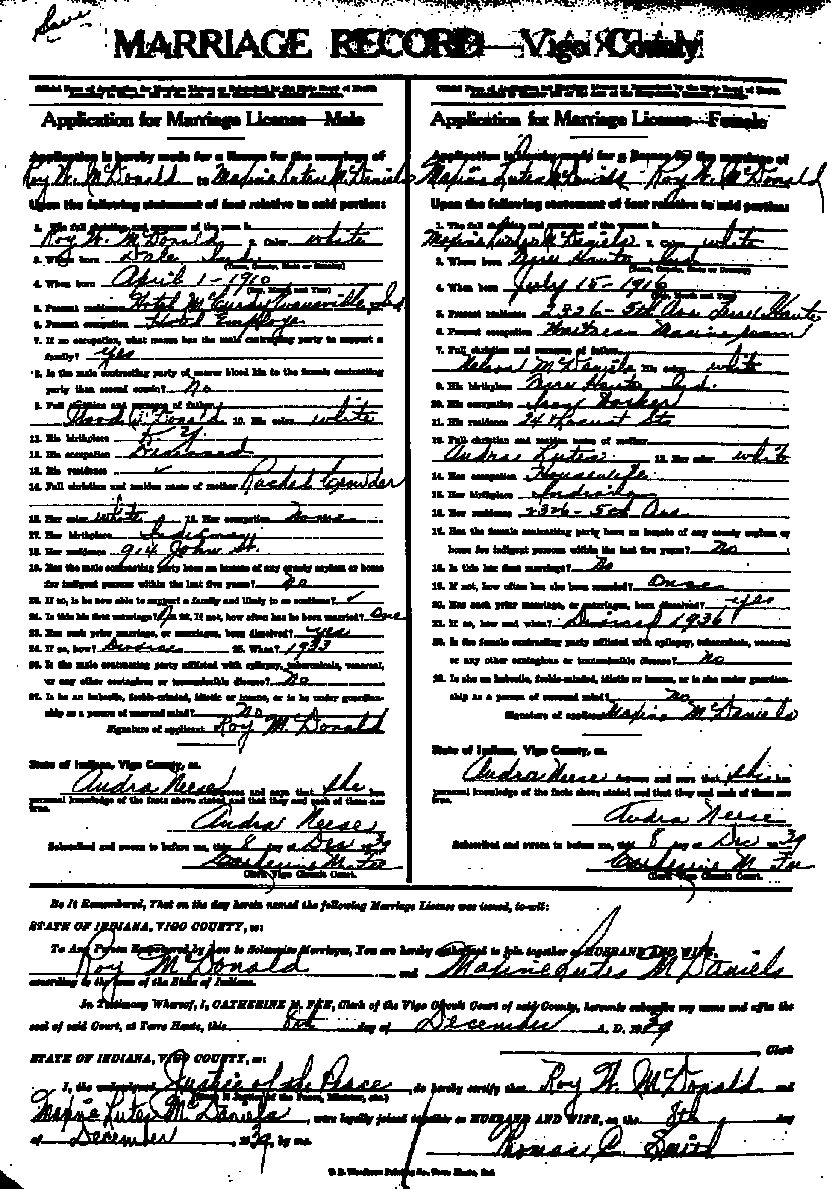 Save
MARRIAGE RECORD — Vigo County
Application for Marriage License—Male
Application is hereby made for a license for the marriage of
Roy W. McDonald to Maxine Lutes McDaniels
Upon the following statement of fact relative to said parties:
1. The full christian and surname of the man is
Roy W. McDonald 2. Color white
3. Where born Dale Ind.
(Town, County, State or Country)
4. When born April 1-1910
(Day, Month and Year)
5. Present residence Hotel McCurdy Evansville, Ind
6. Present occupation Hotel Employe
7. If no occupation, what means has the male contracting party to support a
family? yes
8. Is the male contracting party of nearer blood kin to the female contracting
party than second cousin? No
9. Full christian and surname of father
McDonald 10. His color white
11. His birthplace Ky.
12. His occupation Deceased
13. His residence ✓
14. Full christian and maiden name of mother Rachel Crowder
15. Her color white 16. Her occupation None
17. Her birthplace Indiana
18. Her residence 914 John St.
19. Has the male contracting party been an inmate of any county asylum or home
for indigent persons within the last five years? No
20. If so, is he now able to support a family and likely to so continue? ✓
21. Is this his first marriage? 22. If not, how often has he been married? One
23. Has such prior marriage, or marriages, been dissolved? yes
24. If so, how? Divorce 25. When? 1933
26. Is the male contracting party afflicted with epilepsy, tuberculosis, venereal,
or any other contagious or transmissible disease? No
27. Is he an imbecile, feeble-minded, idiotic or insane, or is he under guardian-
ship as a person of unsound mind? No
Signature of applicant Roy McDonald
State of Indiana, Vigo County, ss.
Audra Neese deposes and says that she has
personal knowledge of the facts above stated and that they and each of them are
true.
Audra Neese
Subscribed and sworn to before me, this 8 day of Dec 1939
Catherine M. Fee
Clerk Vigo Circuit Court.
Application for Marriage License—Female
Application is hereby made for a license for the marriage of
Maxine Lutes McDaniels Roy W. McDonald
Upon the following statement of fact relative to said parties:
1. The full christian and surname of the woman is
Maxine Lutes McDaniels 2. Color white
3. Where born Terre Haute, Ind
(Town, County, State or Country)
4. When born July 15-1916
(Day, Month and Year)
5. Present residence 2326-5th Ave Terre Haute
6. Present occupation
7. Full christian and surname of father
McDaniels 8. His color white
9. His birthplace Terre Haute Ind.
10. His occupation
11. His residence 24 Locust Sts
12. Full christian and maiden name of mother
Audra Lutes 13. Her color white
14. Her occupation Housewife
15. Her birthplace Indiana
16. Her residence 2326-5th Ave
17. Has the female contracting party been an inmate of any county asylum or
home for indigent persons within the last five years? No
18. Is this her first marriage? No
19. If not, how often has she been married? Once
20. Has such prior marriage, or marriages, been dissolved? yes
21. If so, how and when? Divorced 1936
22. Is the female contracting party afflicted with epilepsy, tuberculosis, venereal
or any other contagious or transmissible disease? No
23. Is she an imbecile, feeble-minded, idiotic or insane, or is she under guardian-
ship as a person of unsound mind? No
Signature of applicant Maxine McDaniels
State of Indiana, Vigo County, ss.
Audra Neese deposes and says that she has
personal knowledge of the facts above stated and that they and each of them are
true.
Audra Neese
Subscribed and sworn to before me, this 8 day of Dec 1939
Catherine M. Fee
Clerk Vigo Circuit Court.
Be It Remembered, That on the day herein named the following Marriage License was issued, to-wit:
STATE OF INDIANA, VIGO COUNTY, ss:
To Any Person Empowered by Law to Solemnize Marriages, You are hereby authorized to join together as HUSBAND AND WIFE,
Roy McDonald and Maxine Lutes McDaniels
according to the laws of the State of Indiana.
In Testimony Whereof, I, CATHERINE M. FEE, Clerk of the Vigo Circuit Court of said County, hereunto subscribe my name and affix the
seal of said Court, at Terre Haute, this 8th day of December A. D. 1939
Clerk
STATE OF INDIANA, VIGO COUNTY, ss:
I, the undersigned Justice of the Peace, do hereby certify that Roy W. McDonald and
Maxine Lutes McDaniels, were legally joined together as HUSBAND AND WIFE, on the 8th day
of December, 1939, by me.
Thomas C. Smith